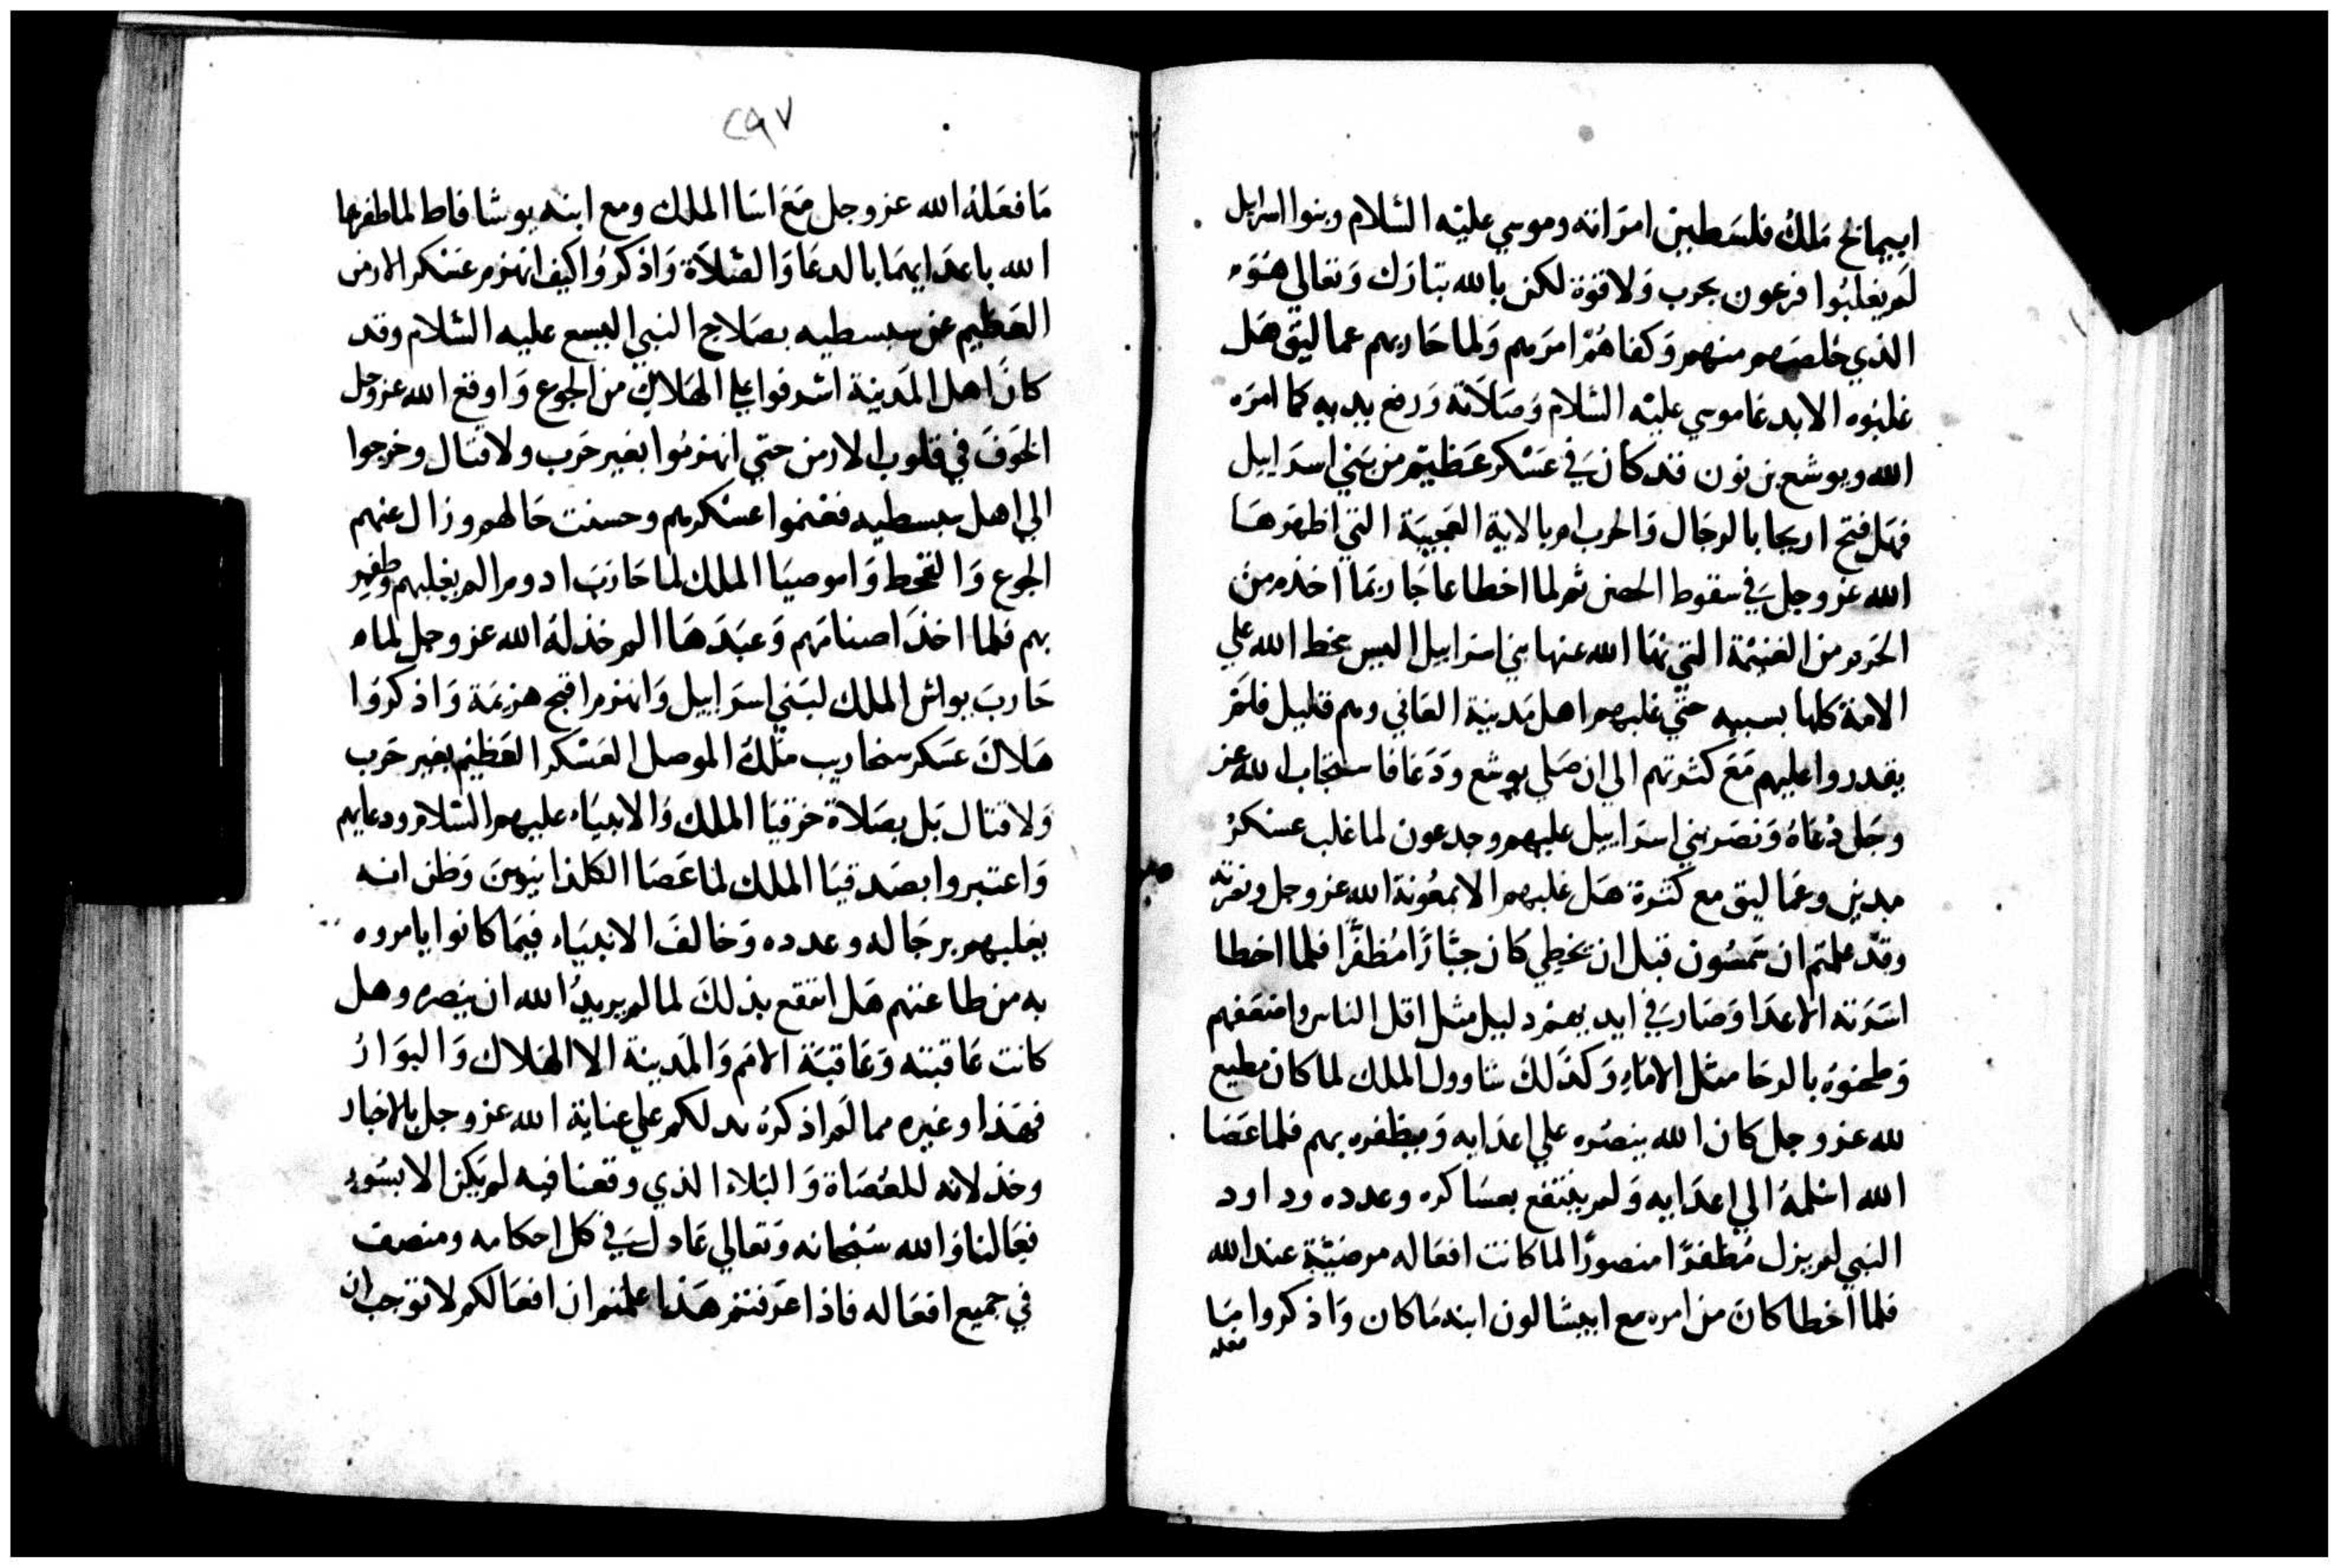 ابيمالخ مَلكُ فلسَطيِن امرَاته وموسي عليْه السَّلام وبنوا اسرايل
لَم يغلبُوا فرعون بحرب وَلا قوة لكن بالله تبَارَك وَتعَالي هُوَ
الذي خلصَهم منهم وَكفاهُمْ امرَهم وَلما حَاربهم عماليق هَل
غلبُوه الا بدعَا موسي عليْه السَّلام وَصَلاَته وَرفع يديه كما امرَه
الله ويوشع بن نون فقد كانَ في عَسْكر عَظيْم من بَني اسرَاييل
فهَل فتح اريحا بالرجَال وَالحرب ام بالاية العَجيبَة التي اظهَرهَا
الله عز وجل في سقوط الحصن ثم لما اخطا عاجَار بمَا اخذه من
الحَرم من الغنيْمة التي نهَا الله عنها بني اسرَاييل اليس سخط الله علي
الامة كلها بسببه حتّي غلبهم اهل مَدينة العَاني وهم قليل فلم
يقدروا عليهم مَعَ كثرتهم الي ان صَلي يوشع وَدَعَا فاستجَاب الله عز
وجَل دُعَاهُ وَنصَر بني اسرَاييل عليهم وجدعون لما غلب عسْكرُ
مدين وعمَاليق مع كثرة هَل غلبهم الا بمعُونة الله عز وجل ونصرته
وَقدْ علمتم ان شمسُون قبل ان يخطِي كان جبَّارًا مُظفَّرًا فلما اخطا
اسَرَته الاعدَا وَصَار في ايديهمْ دليل مثل اقل الناس واضعَفهم
وَطحنوُه بالرحَا مثل الامَاءِ وَكذلكَ شاوول الملك لما كان مطيع
لله عز وجل كان الله ينصُره علي اعدَايه وَيظفره بهم فلما عَصَا
الله اسْلمهُ الي اعدَايه وَلم ينتفع بعسَاكره وعدده وداود
النبي لم يزل مُظفرًا منصورًا لما كانت افعَاله مرضيّة عند الله
فلما اخطا كانَ من امره مع ابيشالون ابنه مَا كان وَاذكروا مَا
فعله
٢٩٧
مَا فعَلهُ الله عز وجل مَعَ اسَا الملك ومع ابنه يوشافاط لما ظفرهما
الله باعدَايهمَا بالدعَا وَالصَّلاَة وَاذكرُوا كيف انهزم عسْكر الارمن
العَظيم عن سبسطيه بصَلاح النبي اليسع عليه السَّلام وقد
كانَ اهل المَدينة اشرفوا علي الهَلاكِ من الجوع وَاوقع الله عز وجل
الخَوفَ في قلوب الارمن حتي انهزمُوا بغير حَرب ولا قتال وخرجوا
الي اهل سبسطيه فغنموا عسْكرهم وحسنت حَالهم وزال عنهم
الجوع وَالقحط وَاموصيَا الملك لما حَاربَ ادوم الم يغلبهم وظفر
بهم فلما اخذَ اصنامَهم وَعبَدَهَا الم خذلهُ الله عز وجل لماه
حَاربَ يواش الملك لبَني اسرَاييل وَانهزم اقبح هزيمَة وَاذكرُوا
هَلاكَ عَسكر سنحاريب ملكُ الموصل العَسْكر العَظيْم بغير حَرب
وَلا قتال بَل بصَلاة حزقيَا الملك وَالانبيَاء عليهم السَّلام ودعايهم
وَاعتبروا بصَدقيَا الملك لما عَصَا الكلذانيّوينَ وَظن انه
يغلبهم برجَاله وعدده وَخالفَ الانبيَاء فيمَا كانوا يامروه
به من طاعتهم هَل انتفع بذلكَ لما لم يريدُ الله ان ينصره وهل
كانت عَاقبته وَعَاقبَة الامَم وَالمَدينة الا الهَلاك وَالبوَارُ
فهَذا وغيره مما لَم اذكرهُ يدلكم علي عناية الله عز وجل بالاخيار
وخذلانه للعُصَاة وَالبَلاء الذي وقعنا فيه لم يَكن الا بسُوء
فعَالنا وَالله سُبْحانه وَتعَالي عَادلَ في كل احكامه ومنصف
في جميع افعَاله فاذا عرَفتم هَذا علمتم ان افعَالكم لا توجب ان